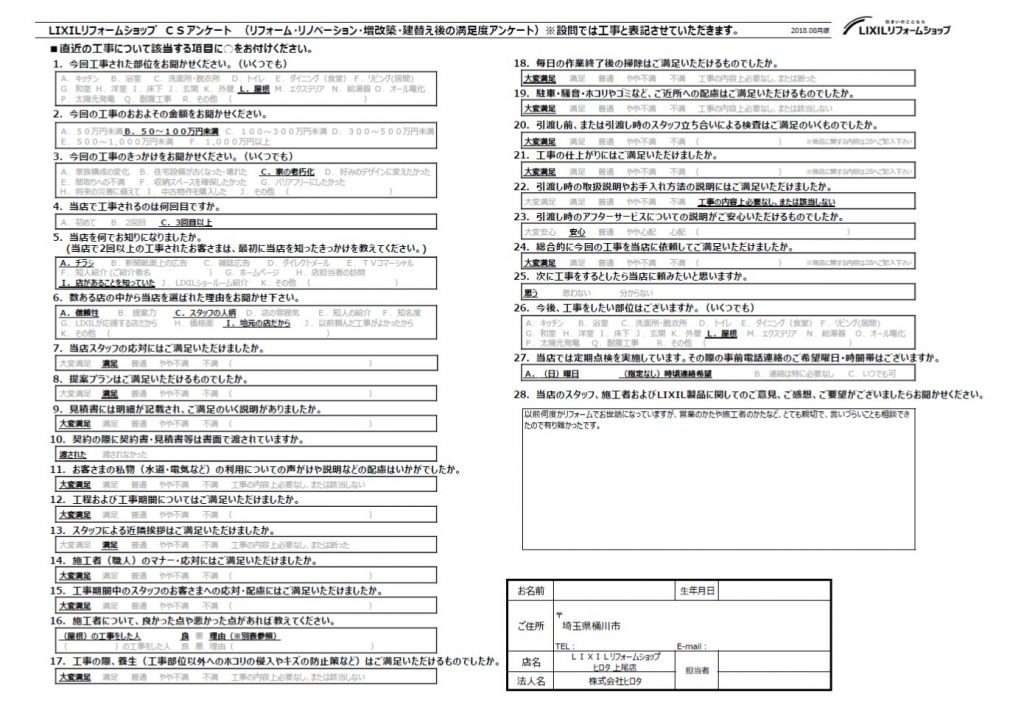 LIXILリフォームショップ　ＣＳアンケート　（リフォーム・リノベーション・増改築・建替え後の満足度アンケート）※設問では工事と表記させていただきます。
2018.08月版
住まいのことなら
LIXILリフォームショップ
■直近の工事について該当する項目に○をお付けください。
1．今回工事された部位をお聞かせください。（いくつでも）
A．キッチン　B．浴室　C．洗面所・脱衣所　D．トイレ　E．ダイニング（食堂）　F．リビング(居間)
G．和室　H．洋室　I．床下　J．玄関　K．外壁　L．屋根　M．エクステリア　N．給湯器　O．オール電化
P．太陽光発電　Q．耐震工事　R．その他（　　　）
2．今回の工事のおおよその金額をお聞かせください。
A．５０万円未満　B．５０～１００万円未満　C．１００～３００万円未満　D．３００～５００万円未満
E．５００～１,０００万円未満　F．１,０００万円以上
3．今回の工事のきっかけをお聞かせください。（いくつでも）
A．家族構成の変化　B．住宅設備が古くなった・壊れた　C．家の老朽化　D．好みのデザインに変えたかった
E．間取りへの不満　F．収納スペースを確保したかった　G．バリアフリーにしたかった
H．将来の災害に備えて　I．中古物件を購入した　J．その他（　　　）
4．当店で工事されるのは何回目ですか。
A．初めて　B．2回目　C．3回目以上
5．当店を何でお知りになりましたか。
（当店で2回以上の工事されたお客さまは、最初に当店を知ったきっかけを教えてください。）
A．チラシ　B．新聞紙面上の広告　C．雑誌広告　D．ダイレクトメール　E．ＴＶコマーシャル
F．知人紹介（ご紹介者名　　　）　G．ホームページ　H．店担当者の訪問
I．店があることを知っていた　J．LIXILショールーム紹介　K．その他（　　　）
6．数ある店の中から当店を選ばれた理由をお聞かせ下さい。
A．信頼性　B．提案力　C．スタッフの人柄　D．店の雰囲気　E．知人の紹介　F．知名度
G．LIXILが応援する店だから　H．価格面　I．地元の店だから　J．以前頼んだ工事がよかったから
K．その他（　　　）
7．当店スタッフの応対にはご満足いただけましたか。
大変満足　満足　普通　やや不満　不満（　　　）
8．提案プランはご満足いただけるものでしたか。
大変満足　満足　普通　やや不満　不満（　　　）
9．見積書には明細が記載され、ご満足のいく説明がありましたか。
大変満足　満足　普通　やや不満　不満（　　　）
10．契約の際に契約書・見積書等は書面で渡されていますか。
渡された　渡されなかった
11．お客さまの私物（水道・電気など）の利用についての声がけや説明などの配慮はいかがでしたか。
大変満足　満足　普通　やや不満　不満　工事の内容上必要なし、または該当しない
12．工程および工事期間についてはご満足いただけましたか。
大変満足　満足　普通　やや不満　不満（　　　）
13．スタッフによる近隣挨拶はご満足いただけましたか。
大変満足　満足　普通　やや不満　不満　工事の内容上必要なし、または断った
14．施工者（職人）のマナー・応対にはご満足いただけましたか。
大変満足　満足　普通　やや不満　不満（　　　）
15．工事期間中のスタッフのお客さまへの応対・配慮にはご満足いただけましたか。
大変満足　満足　普通　やや不満　不満（　　　）
16．施工者について、良かった点や悪かった点があれば教えてください。
（屋根）の工事をした人　良　悪　理由（※別表参照）
（　　　）の工事をした人　良　悪　理由（　　　）
17．工事の際、養生（工事部位以外へのホコリの侵入やキズの防止策など）はご満足いただけるものでしたか。
大変満足　満足　普通　やや不満　不満　工事の内容上必要なし、または該当しない
18．毎日の作業終了後の掃除はご満足いただけるものでしたか。
大変満足　満足　普通　やや不満　不満　工事の内容上必要なし、または断った
19．駐車・騒音・ホコリやゴミなど、ご近所への配慮はご満足いただけるものでしたか。
大変満足　満足　普通　やや不満　不満　工事の内容上必要なし、または該当しない
20．引渡し前、または引渡し時のスタッフ立ち合いによる検査はご満足のいくものでしたか。
大変満足　満足　普通　やや不満　不満（　　　）※商品に関する内容は28へご記入下さい
21．工事の仕上がりにはご満足いただけましたか。
大変満足　満足　普通　やや不満　不満（　　　）※商品に関する内容は28へご記入下さい
22．引渡し時の取扱説明やお手入れ方法の説明にはご満足いただけましたか。
大変満足　満足　普通　やや不満　不満　工事の内容上必要なし、または該当しない
23．引渡し時のアフターサービスについての説明がご安心いただけるものでしたか。
大変安心　安心　普通　やや心配　心配（　　　）
24．総合的に今回の工事を当店に依頼してご満足いただけましたか。
大変満足　満足　普通　やや不満　不満（　　　）※商品に関する内容は28へご記入下さい
25．次に工事をするとしたら当店に頼みたいと思いますか。
思う　思わない　分からない
26．今後、工事をしたい部位はございますか。（いくつでも）
A．キッチン　B．浴室　C．洗面所・脱衣所　D．トイレ　E．ダイニング（食堂）　F．リビング(居間)
G．和室　H．洋室　I．床下　J．玄関　K．外壁　L．屋根　M．エクステリア　N．給湯器　O．オール電化
P．太陽光発電　Q．耐震工事　R．その他（　　　）
27．当店では定期点検を実施しています。その際の事前電話連絡のご希望曜日・時間帯はございますか。
A．（日）曜日　（指定なし）時頃連絡希望　B．連絡は特に必要なし　C．いつでも可
28．当店のスタッフ、施工者およびLIXIL製品に関してのご意見、ご感想、ご要望がございましたらお聞かせください。
以前何度かリフォームでお世話になっていますが、営業のかたや施工者のかたなど、とても親切で、言いづらいことも相談でき
たので有り難かったです。
お名前　生年月日
ご住所　〒
埼玉県桶川市
TEL：　E-mail：
店名　ＬＩＸＩＬリフォームショップ
ヒロタ 上尾店　担当者
法人名　株式会社ヒロタ